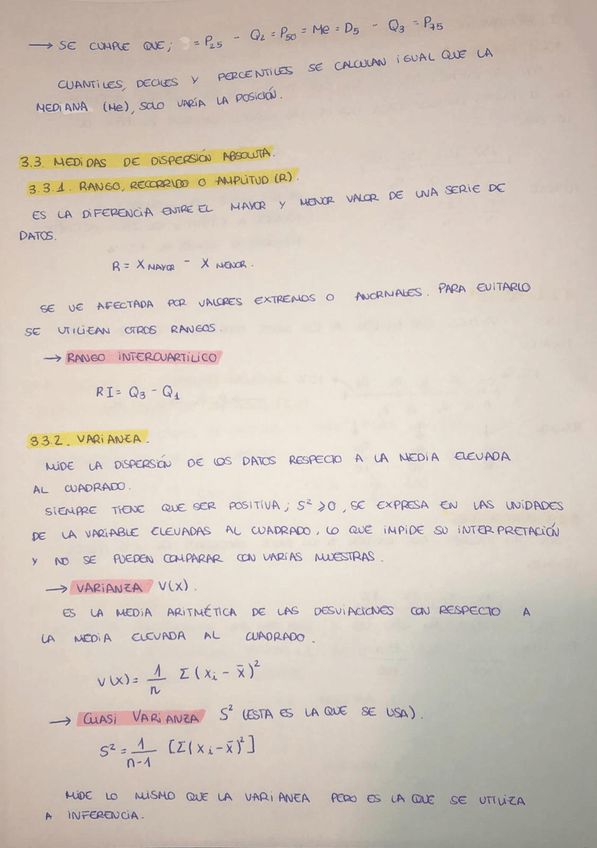 → SE CUMPLE QUE; = P25 - Q2 = P50 = Me = D5 - Q3 = P75
CUANTILES, DECILES Y PERCENTILES SE CALCULAN IGUAL QUE LA
MEDIANA (Me), SOLO VARÍA LA POSICIÓN.
3.3. MEDIDAS DE DISPERSIÓN ABSOLUTA.
3.3.1. RANGO, RECORRIDO O AMPLITUD (R).
ES LA DIFERENCIA ENTRE EL MAYOR Y MENOR VALOR DE UNA SERIE DE
DATOS.
R = X MAYOR - X MENOR.
SE VE AFECTADA POR VALORES EXTREMOS O ANORMALES. PARA EVITARLO
SE UTILIZAN OTROS RANGOS.
→ RANGO INTERCUARTÍLICO
RI = Q3 - Q1
3.3.2. VARIANZA.
MIDE LA DISPERSIÓN DE LOS DATOS RESPECTO A LA MEDIA ELEVADA
AL CUADRADO.
SIEMPRE TIENE QUE SER POSITIVA; S² ≥ 0, SE EXPRESA EN LAS UNIDADES
DE LA VARIABLE ELEVADAS AL CUADRADO, LO QUE IMPIDE SU INTERPRETACIÓN
Y NO SE PUEDEN COMPARAR CON VARIAS MUESTRAS.
→ VARIANZA V(X).
ES LA MEDIA ARITMÉTICA DE LAS DESVIACIONES CON RESPECTO A
LA MEDIA ELEVADA AL CUADRADO.
V(X) = 1/n Σ(xi - x̄)²
→ CUASI VARIANZA S² (ESTA ES LA QUE SE USA).
S² = 1/n-1 [Σ(xi - x̄)²]
MIDE LO MISMO QUE LA VARIANZA PERO ES LA QUE SE UTILIZA
A INFERENCIA.